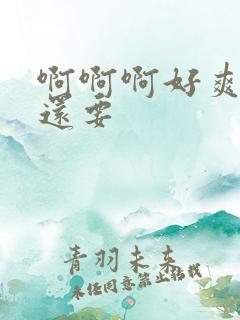 啊啊啊好爽
還要
青羽未来
未任同意禁止转载